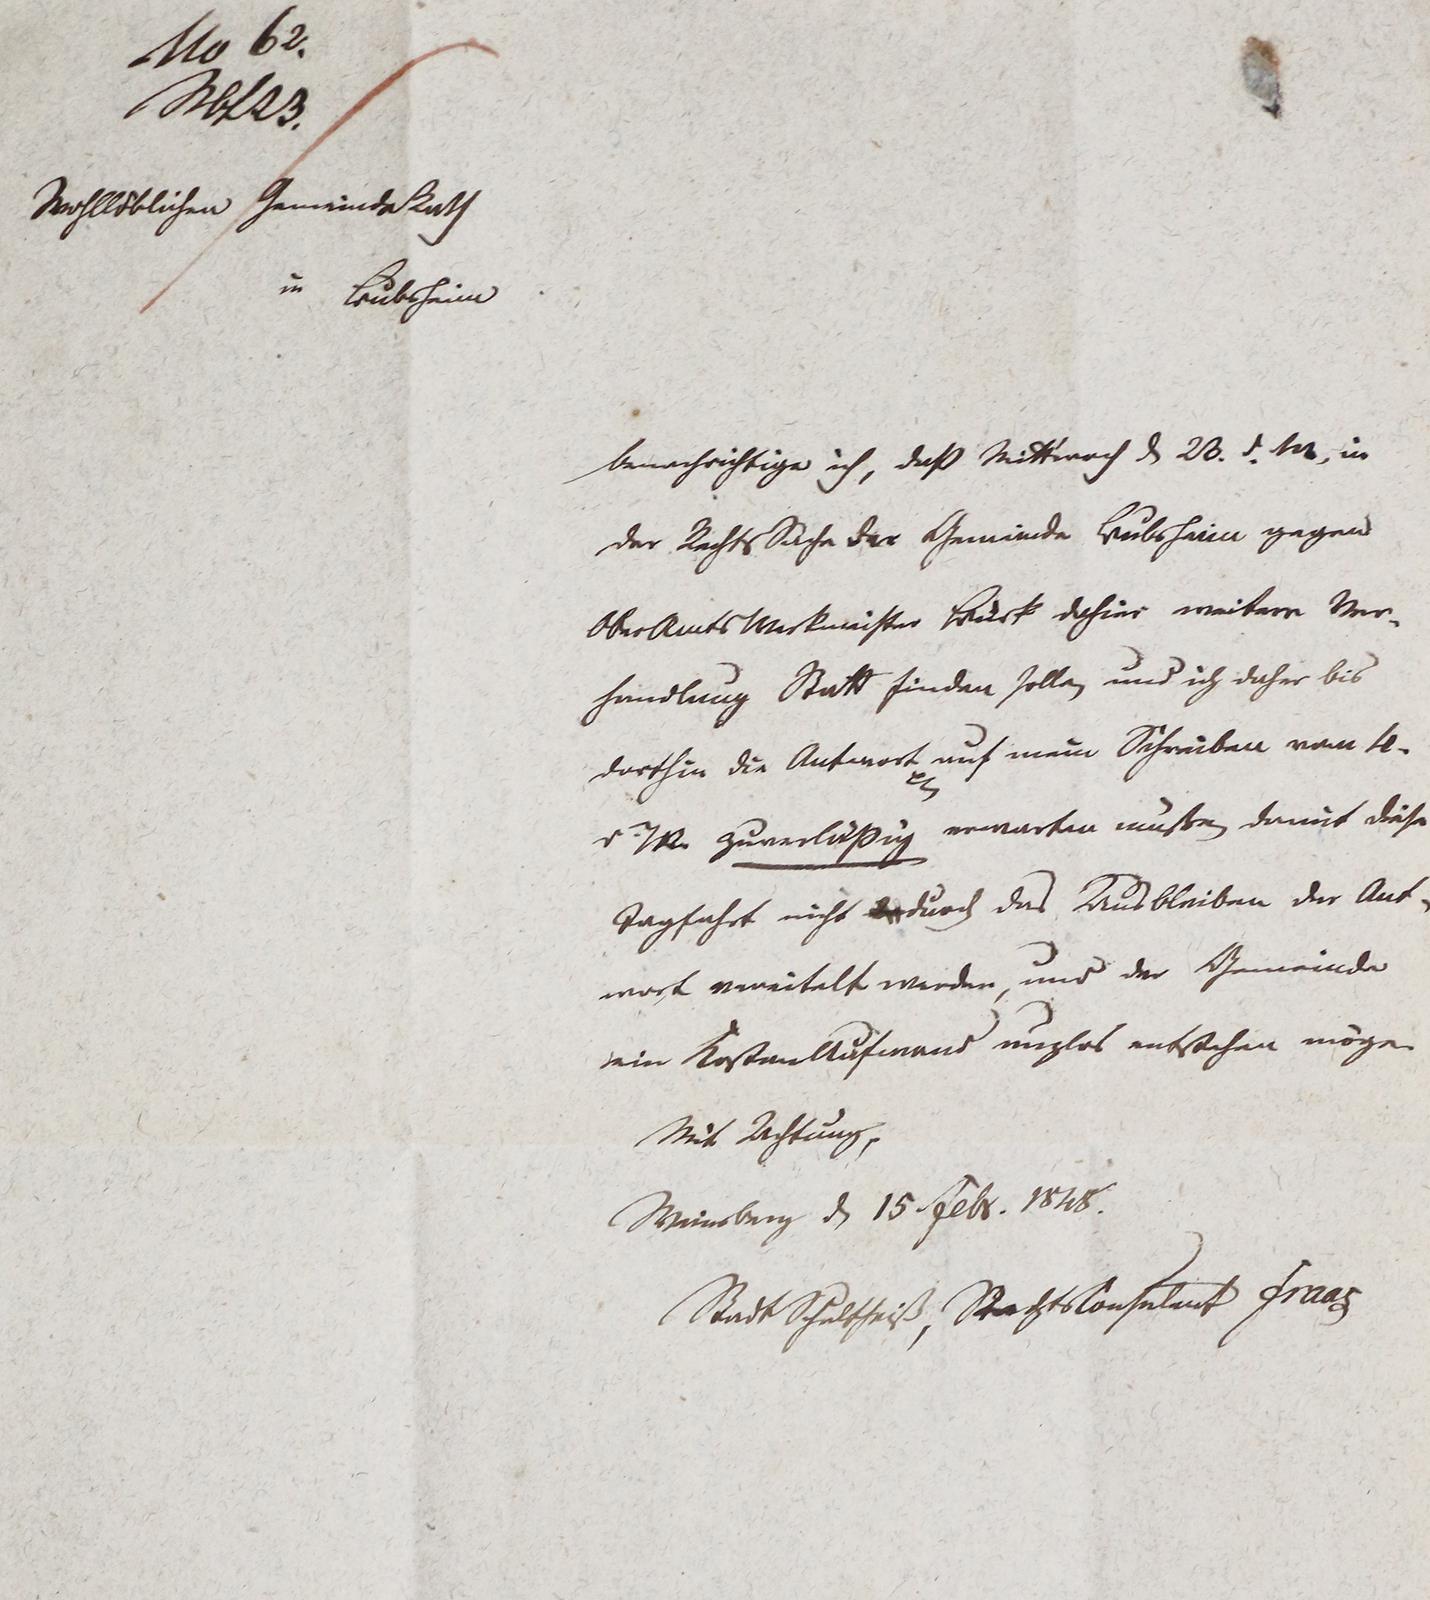 No 62.
Wohllöblichen GemeindeRath
in
benachrichtige ich, daß Mittwoch d 23. d. M. in
der RechtsSache der Gemeinde gegen
OberAmtsWerkmeister dahier weitere Ver-
handlung Statt finden solle, und ich daher bis
dorthin die Antwort auf mein Schreiben vom 4.
d. M. zuverläßig erwarten müsse, damit diese
Tagfahrt nicht durch das Ausbleiben der Ant-
wort vereitelt werden, und der Gemeinde
ein KostenAufwand nuzlos entstehen möge.
Mit Achtung,
Weinsberg d 15 Febr. 1848.
StadtSchultheiß, RechtsConsulent Fraas